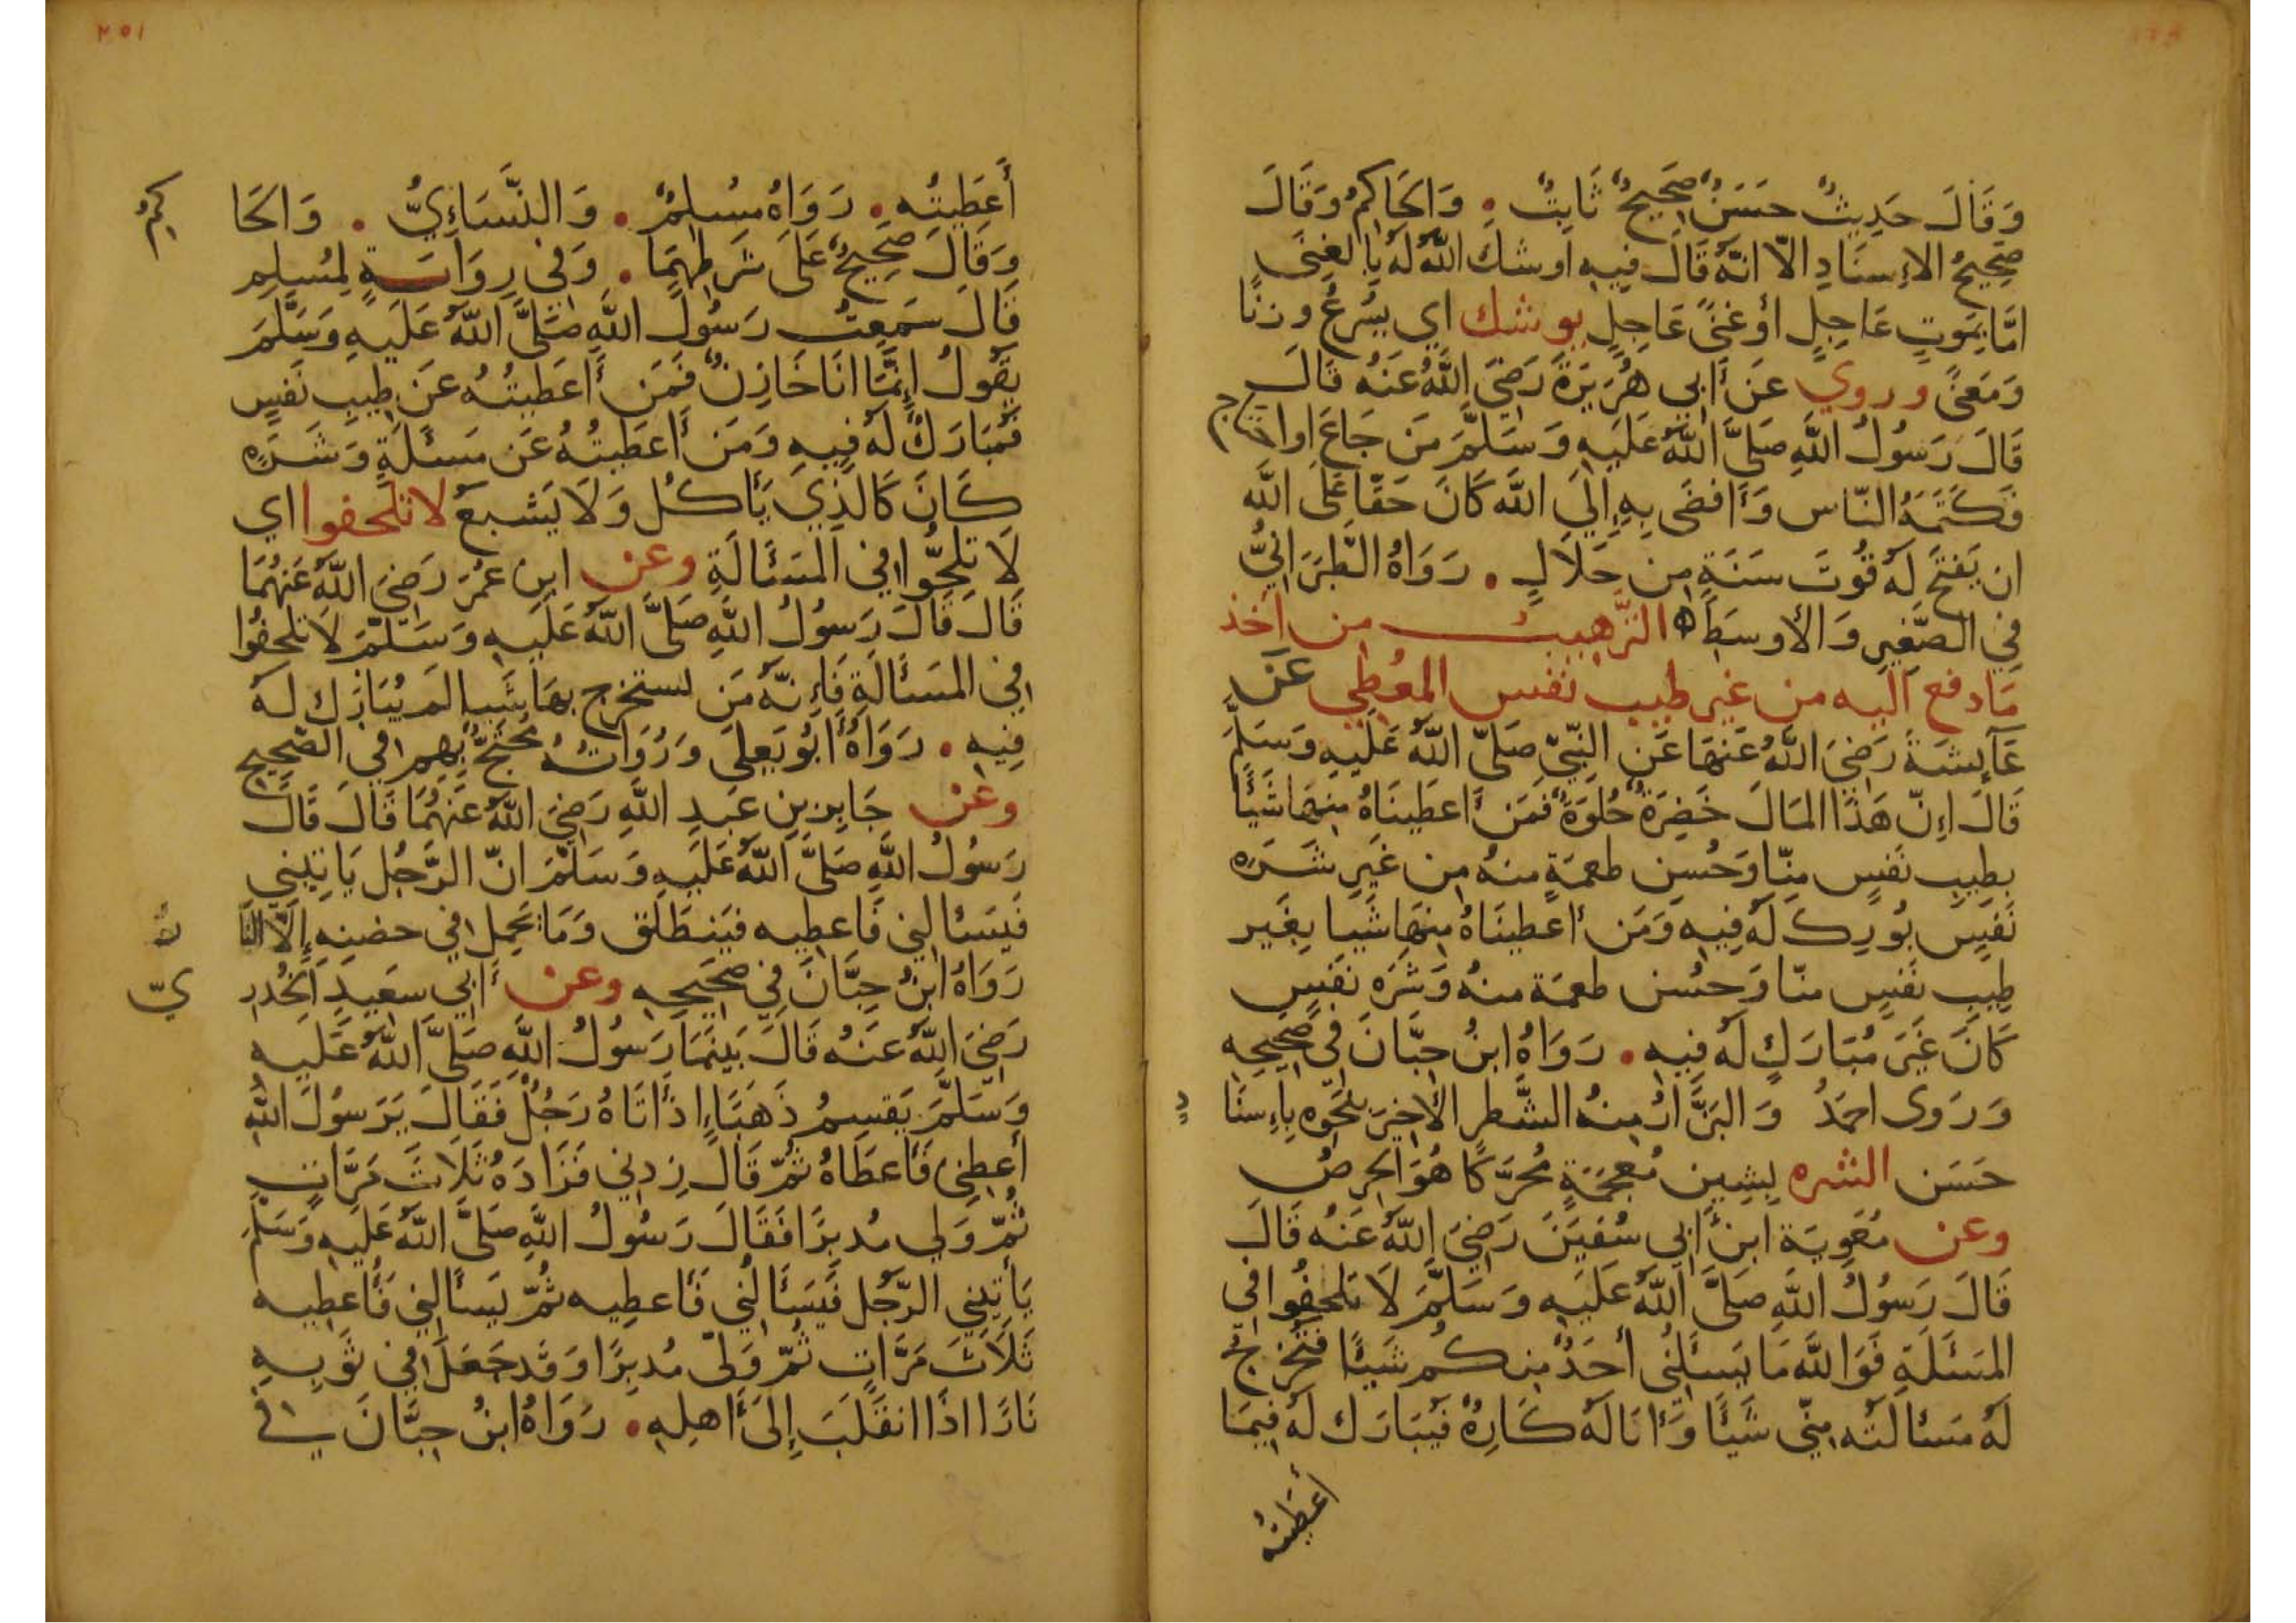 وَقَالَ حَدِيثٌ حَسَنٌ صَحِيحٌ ثَابِتٌ . وَالحَاكِمُ وَقَالَ
صَحِيحُ الإِسنَادِ الّا انّهُ قَالَ فِيهِ اوشكَ اللّهُ لَهُ بِالغِنَى
امَّا بِمَوتٍ عَاجِلٍ أَوغنًى عَاجِلٍ يوشك اي يُسرِعُ وزنًا
وَمَعنًى وروي عَن أَبِي هُرَيرَةَ رَضِيَ اللّهُ عَنهُ قَالَ
قَالَ رَسُولُ اللّهِ صَلَّى اللّهُ عَلَيهِ وَسَلَّمَ مَن جَاعَ اواحتاج
فَكَتَمَهُ النّاس وَأَفضَى بِهِ إِلَى اللّه كَانَ حَقًّا عَلَى اللّه
ان يَفتَحَ لَهُ قُوتَ سَنَةٍ مِن حَلَالٍ . رَوَاهُ الطَّبَرَانِيُّ
فِي الصَّغِيرِ وَالأَوسَطِ ه الترهيب من أخذ
مَا دفع اليه من غير طيب نفس المعُطِي عَن
عَآئِشَةَ رَضِيَ اللّهُ عَنهَا عَنِ النَّبِيّ صَلّى اللّهُ عَلَيهِ وَسَلَّمَ
قَالَ إِنّ هَذَا المَالَ خَضِرَةٌ حُلوَةٌ فَمَن أَعطَينَاهُ مِنهَا شَيئًا
بِطِيبِ نَفسٍ مِنّا وَحُسنِ طعمَةٍ مِنهُ مِن غَيرِ شَرَهِ
نَفسٍ بُورِكَ لَهُ فِيهِ وَمَن أَعطينَاهُ مِنهَا شَيا بِغَير
طِيبِ نَفسٍ منّا وَحُسن طعمَة منهُ وَشَرَهِ نفسٍ
كَانَ غَيرَ مُبَارَكٍ لَهُ فِيهِ . رَوَاهُ ابنُ حِبّانَ فِي صَحِيحِهِ
وَرَوى احمَدُ وَالبَزَّارُ مِنهُ الشَّطرِ الأَخِيرَ بِنَحوِهِ بِإِسنَادٍ
حَسَن الشره بِشِينٍ مُعجَمَةٍ مُحَرَّكًا هُوَ الحِرصُ
وعن مُعَوِيَة ابنِ أَبِي سُفيَنَ رَضِيَ اللّهُ عَنهُ قَالَ
قَالَ رَسُولُ اللّهِ صَلَّى اللّهُ عَلَيهِ وَسَلَّمَ لَا تلحِفُوا فِي
المَسئَلَةِ فَوَاللّه مَا يَسئَلُنِي أَحَدٌ مِنكُم شَيئًا فَتُخرِجُ
لَهُ مَسئالَتُه مِنّي شَيئًا وَأَنَا لَهُ كَارِهٌ فَيُبَارَك لَهُ فِيمَا
أَعطَيتُه
٢٥١
أَعطَيتُه . رَوَاهُ مُسلِمٌ . وَالنَّسَاءِيُّ . وَالحَاكِمُ
وَقَالَ صَحِيحٌ عَلَى شَرطِهِمَا . وَفِي رِوَايَةٍ لِمُسلِمٍ
قَالَ سَمِعتُ رَسُولَ اللّهِ صَلَّى اللّهُ عَلَيهِ وَسَلَّمَ
يَقُولُ إِنَّمَا انَا خَازِنٌ فَمَن أَعطَيتُهُ عَن طِيبِ نَفسٍ
فَمُبَارَكٌ لَهُ فِيهِ وَمَن أَعطَيتُهُ عَن مَسئَلَةٍ وَشَرَهٍ
كَانَ كَالَّذِي يَأكُل وَلَا يَشبَعُ لا تلحفوا اي
لَا تُلِحُّوا فِي المَسَئَالَةِ وعن ابنِ عُمَرَ رَضِيَ اللّهُ عَنهُمَا
قَالَ قَالَ رَسُولُ اللّهِ صَلَّى اللّهُ عَلَيهِ وَسَلَّمَ لَا تلحِفُوا
فِي المَسَئَالَةِ فَإِنَّهُ مَن يستخرج بِهَا شَيا لَم يُبَارَك لَهُ
فِيهِ . رَوَاهُ أَبُو يَعلَى وَرُوَاتُهُ مُحتَجٌّ بِهِم فِي الصَّحِيحِ
وعن جَابِرِ بنِ عَبدِ اللّهِ رَضِيَ اللّهُ عَنهُمَا قَالَ قَالَ
رَسُولُ اللّهِ صَلَّى اللّهُ عَلَيهِ وَسَلَّمَ انّ الرَّجُل يَاتِينِي
فَيَسئالنِي فَاعطِيهِ فيَنطَلق وَمَا يَحمِل فِي حضنِهِ إِلّا النّا
رَوَاهُ ابنُ حِبَّانَ فِي صَحِيحِهِ وعن أَبِي سَعِيدٍ الخُدرِيّ
رَضِيَ اللّهُ عَنهُ قَالَ بَينَمَا رَسُولُ اللّهِ صَلَّى اللّهُ عَلَيهِ
وَسَلَّمَ يَقسِمُ ذَهَبًا إِذ أَتَاهُ رَجُلٌ فَقَالَ يَرَسُولَ اللّهِ
أَعطِنِي فَأَعطَاهُ ثُمّ قَالَ زِدنِي فَزَادَهُ ثَلَاثَ مَرَّاتٍ
ثُمّ وَلى مُدبِرًا فَقَالَ رَسُولُ اللّهِ صَلَّى اللّهُ عَلَيهِ وَسَلَّمَ
يَأتِينِي الرّجُل فَيَسَئَالُنِي فَأعطِيه ثُمّ يَسَأَلنِي فَأُعطِيه
ثَلَاثَ مَرَّاتٍ ثُمّ وَلّى مُدبِرًا وَقَد جَعَلَ فِي ثَوبِهِ
نَارًا اذَا انقَلَبَ إِلَى أَهلِهِ . رَوَاهُ ابنُ حِبَّانَ فِي